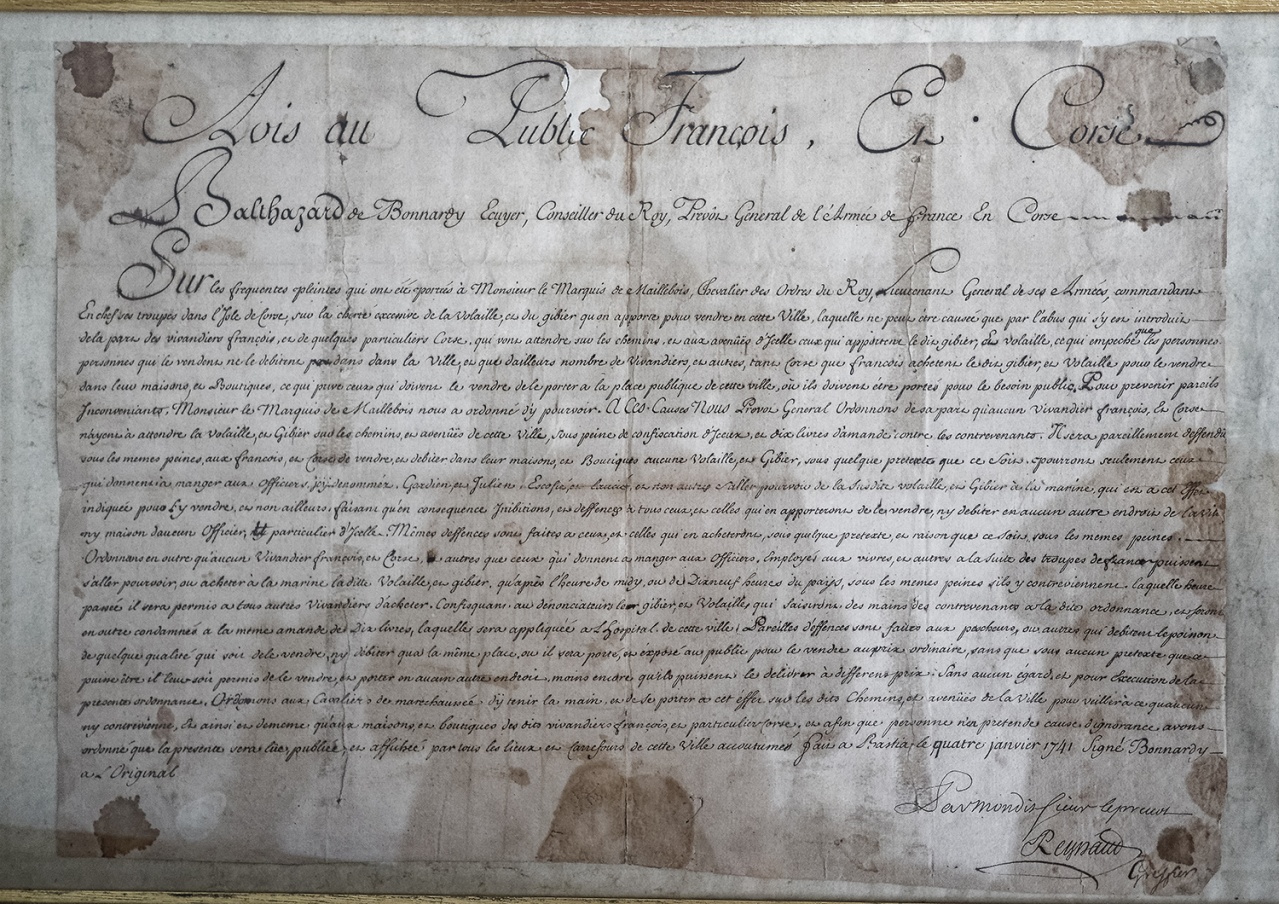 Avis au Public François, En Corse
Balthazard de Bonnardy Ecuyer, Conseiller du Roy, Prevot General de l'Armée de france En Corse
Sur les frequentes pleintes qui ont été portés à Monsieur le Marquis de Maillebois, Chevalier des Ordres du Roy, Lieutenant General de ses Armées, commandant
En chef ses troupes dans l'Isle de Corse, sur la cherté excessive de la Volaille, et du gibier qu'on apporte pour vendre en cette Ville, laquelle ne peut être causéé que par l'abus qui s'y est introduit
de la part des vivandiers françois, et de quelques particuliers Corse, qui vont attendre sur les chemins, et aux avenües d'Jcelle ceux qui apportent le dit gibier, et volaille, ce qui empeche que les personnes
personnes qui le vendent ne le debitent dans la Ville, et que dailleurs nombre de Vivandiers, et autres, tant Corse que françois achetent le dit gibier, et Volaille pour le vendre
dans leur maisons, et Boutiques, ce qui prive ceux qui doivent le vendre de le porter a la place publique de cette ville, où ils doivent être portés pour le besoin public, Pour prevenir pareils
Jnconveniants, Monsieur le Marquis de Maillebois nous a ordonné d'y pourvoir. A Ces Causes Nous Prevot General Ordonnons de sa part qu'aucun Vivandier françois, et Corse
n'ayent à attendre la Volaille, et Gibier sur les chemins, et avenües de cette Ville, sous peine de confiscation d'Jceux, et dix livres d'amande contre les contrevenants. Il sera pareillement deffendu
sous les memes peines, aux françois, et Corse de vendre, et debiter dans leur maisons, et Boutiques aucune Volaille, et Gibier, sous quelque pretexte que ce soit, pourront seulement ceux
qui donnent à manger aux Officiers, denommez, Gardien, et Julien, et non autres s'aller pourvoir de la Susdite volaille, et Gibier à la marine, qui est a cet effet
indiquée pour l'y vendre, et non ailleurs. faisant qu'en consequence Jnibitions, et deffences à tous ceux, et celles qui en apporteront de le vendre, ny debiter en aucun autre endroit de la Ville
ny maison d'aucun Officier, et particulier d'Jcelle. Mêmes deffences sont faites a ceux, et celles qui en acheteront, sous quelque pretexte, et raison que ce soit, sous les memes peines.
Ordonnons en outre qu'aucun Vivandier françois, et Corse, et autres que ceux qui donnent a manger aux Officiers, Employés aux vivres, et autres a la suite des troupes de france puissent
s'aller pourvoir, ou acheter à la marine la ditte Volaille, et gibier, qu'après l'heure de midy, ou de Dixneuf heures du pays, sous les memes peines s'ils y contreviennent. laquelle heure
passée il sera permis a tous autres Vivandiers d'acheter. Confisquant au denonciateurs le gibier, et Volailles qui saisiront des mains des contrevenants a la dite ordonnance, et seront
en outre condamnés à la même amande de Dix livres, laquelle sera appliquée a L'hospital de cette ville. Pareilles deffences sont faites aux pescheurs, ou autres qui debitent le poisson
de quelque qualité qui soit de le vendre, ny debiter qu'a la même place, ou il sera porté, et exposé au public pour le vendre au prix ordinaire, sans que sous aucun pretexte que ce
puisse être il leur soit permis de le vendre, et porter en aucun autre endroit, moins encore qu'ils puissent le delivrer à differens prix. Sans aucun égard, et pour execution de la
presente ordonnance. Ordonnons aux Cavaliers de marechaussée d'y tenir la main, et de se porter a cet effet sur les dits Chemins, et avenües de la Ville pour veiller à ce qu'aucun
ny contrevienne, et ainsi et de meme qu'aux maisons, et boutiques des dits vivandiers françois, et particulier Corse, et afin que personne n'en pretende cause d'ignorance avons
ordonné que la presente sera lüe, publiée, et affichée par tous les lieux, et Carrefours de cette Ville accoutumés fait a Bastia, le quatre janvier 1741 Signé Bonnardy
a L'Original
Par mondit sieur le prevot
Reynaud
Greffier